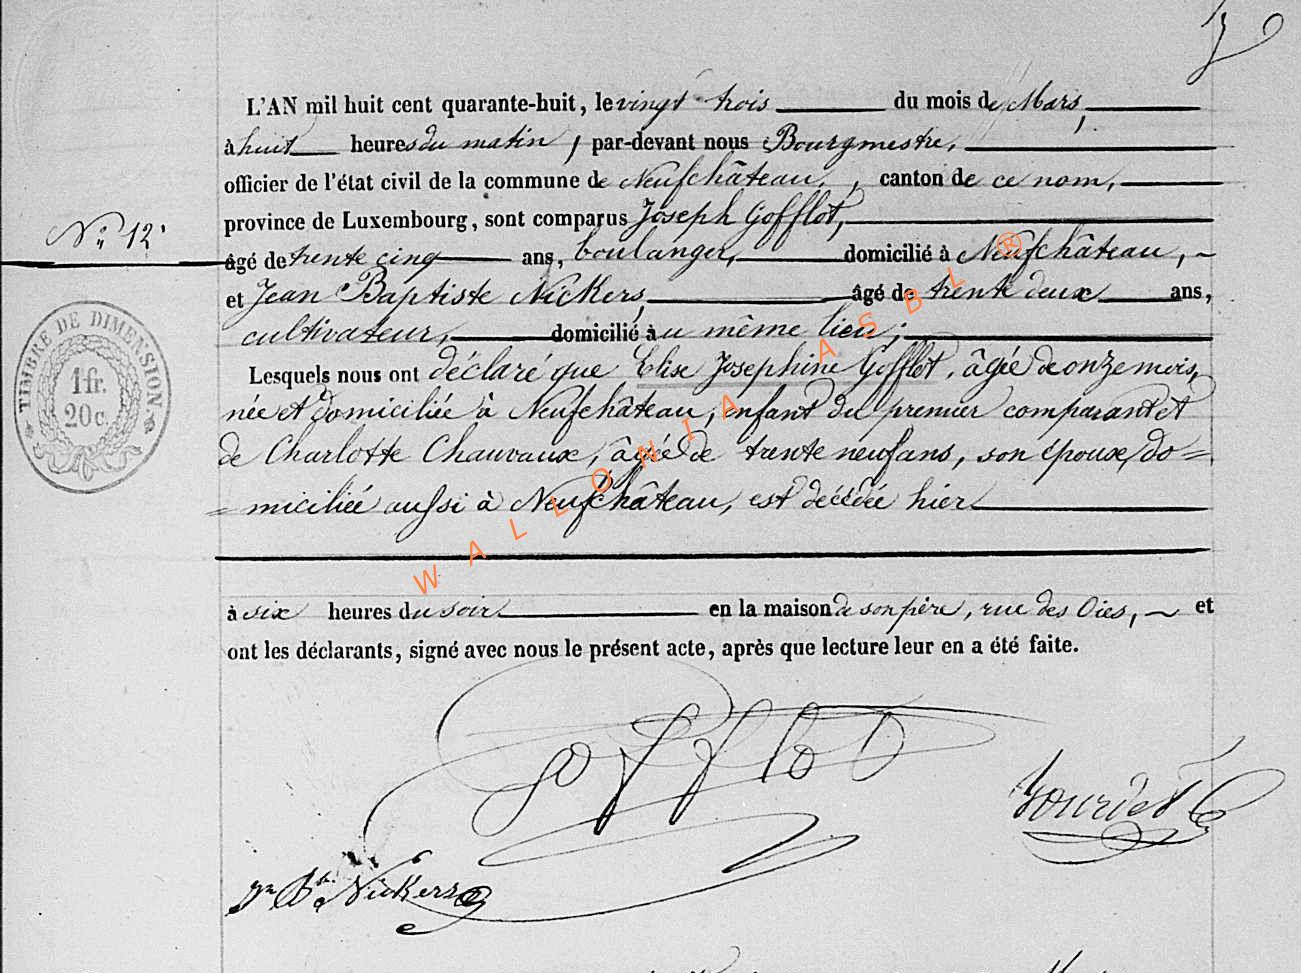 N° 12.
TIMBRE DE DIMENSION
1 fr.
20 c.
L'AN mil huit cent quarante-huit, le vingt trois du mois de Mars,
à huit heures du matin, par-devant nous Bourgmestre,
officier de l'état civil de la commune de Neufchâteau, canton de ce nom,
province de Luxembourg, sont comparus Joseph Gofflot,
âgé de trente cinq ans, boulanger, domicilié à Neufchâteau,
et Jean Baptiste Nickers, âgé de trente deux ans,
cultivateur, domicilié au même lieu;
Lesquels nous ont déclaré que Elise Josephine Gofflot, âgée de onze mois,
née et domiciliée à Neufchâteau, enfant du premier comparant et
de Charlotte Chauvaux, âgée de trente neuf ans, son épouse, do=
=miciliée aussi à Neufchâteau, est décédée hier
à six heures du soir en la maison de son père, rue des Oies, et
ont les déclarants, signé avec nous le présent acte, après que lecture leur en a été faite.
Gofflot
Jn Bte Nickers
WALLONIA ASBL ®